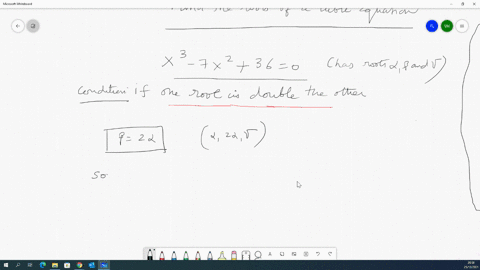 Microsoft Whiteboard
the roots of a cubic equation
x³ - 7x² + 36 = 0 (has roots α, β and γ)
Condition if one root is double the other
β = 2α (α, 2α, γ)
so